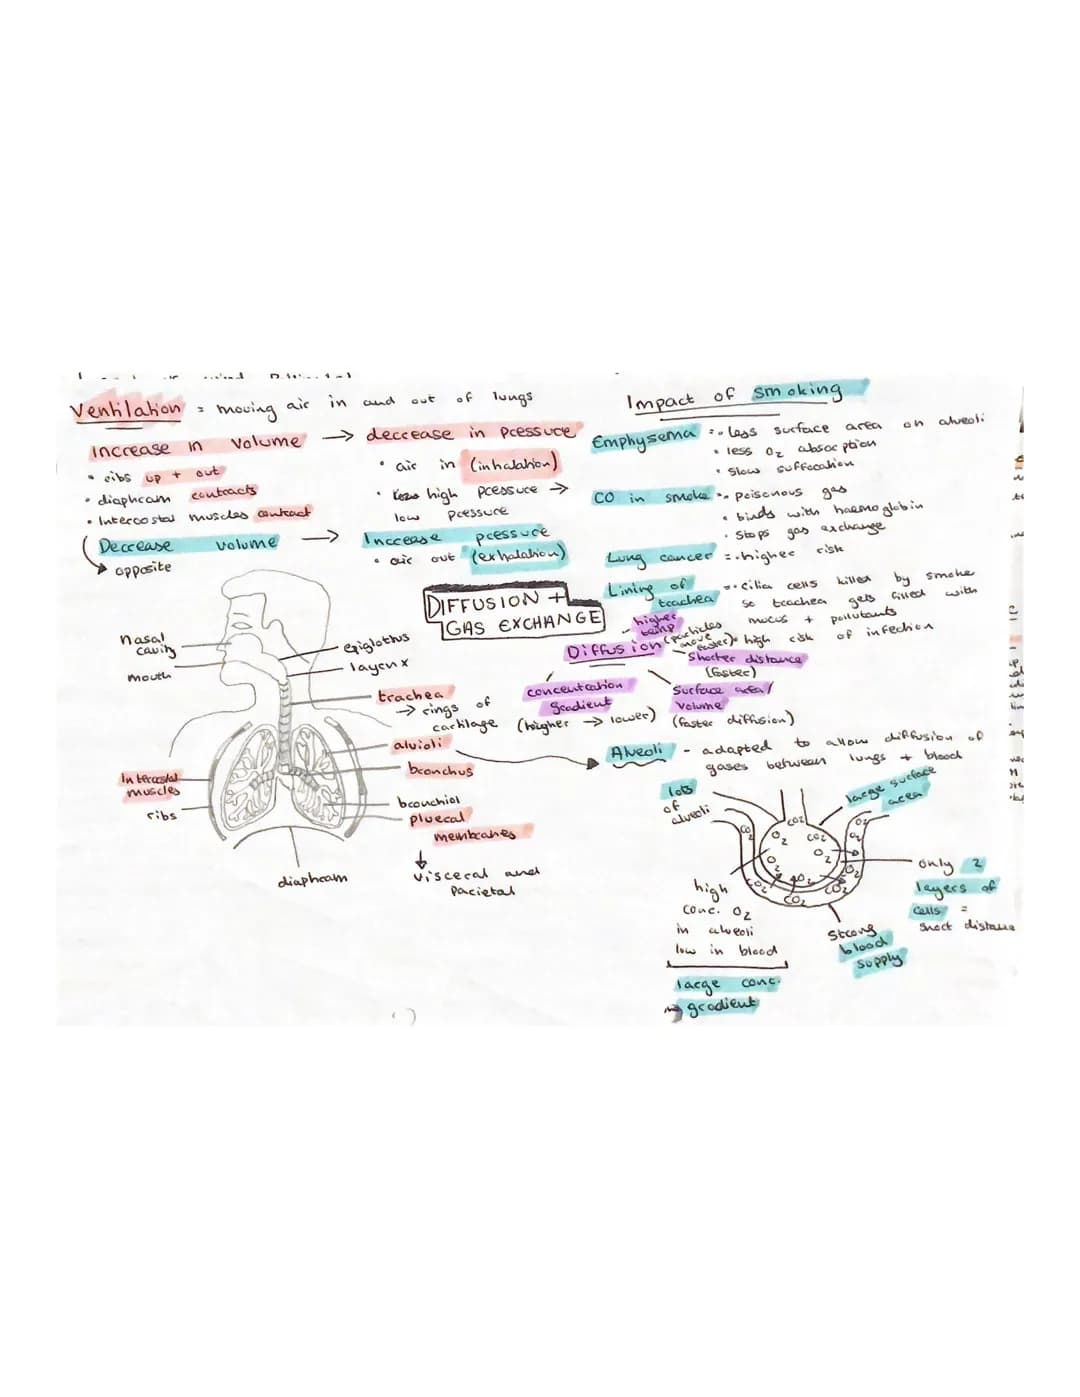 Ventilation = moving air in and out of lungs
Increase in Volume → decrease in pressure
• ribs up + out
• diaphram contracts
• Intercostal muscles contract
• air in (inhalation)
• high pressure →
low pressure
Decrease volume → Increase pressure
opposite
• air out (exhalation)
DIFFUSION +
GAS EXCHANGE
nasal
cavity
mouth
epiglothus
layrnx
trachea
→ rings of
cartilage
alvioli
bronchus
bronchiol
plueral
membranes
↓
visceral and
parietal
Intercostal
muscles
ribs
diaphram
Impact of smoking
Emphysema = • less surface area on alveoli
• less O2 absorption
• slow suffocation
CO in smoke = • poisonous gas
• binds with haemoglobin
• stops gas exchange
Lung cancer = • higher risk
Lining of
trachea = • cilia cells killed by smoke
so trachea gets filled with
mucus + pollutants
• high risk of infection
Diffusion
- higher
temp (particles
move
faster)
shorter distance
(faster)
concentration
gradient
(higher → lower)
Surface area/
Volume
(faster diffusion)
Alveoli - adapted to allow diffusion of
gases between lungs + blood
lots
of
alveoli
large surface
area
CO2
O2
CO2
O2
O2
CO2
CO2
CO2
O2
O2
O2
CO2
high
conc. O2
in alveoli
low in blood
large conc.
gradient
only 2
layers of
cells =
short distance
strong
blood
supply